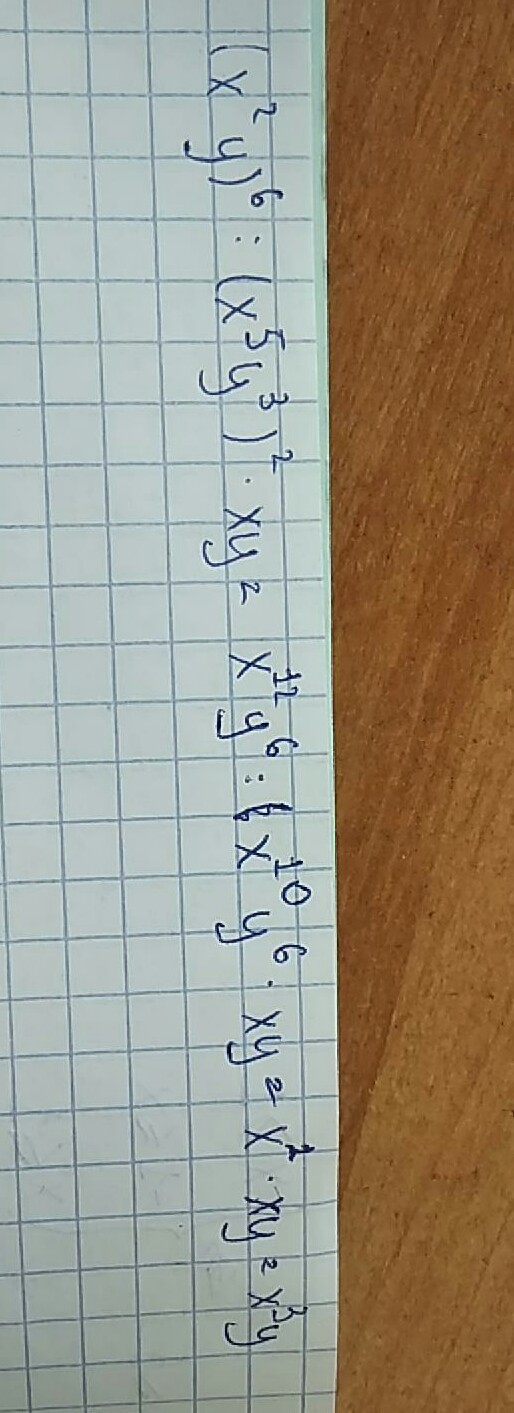 (x²y)⁶ : (x⁵y³)² · xy = x¹²y⁶ : (x¹⁰y⁶ · xy = x² · xy = x³y